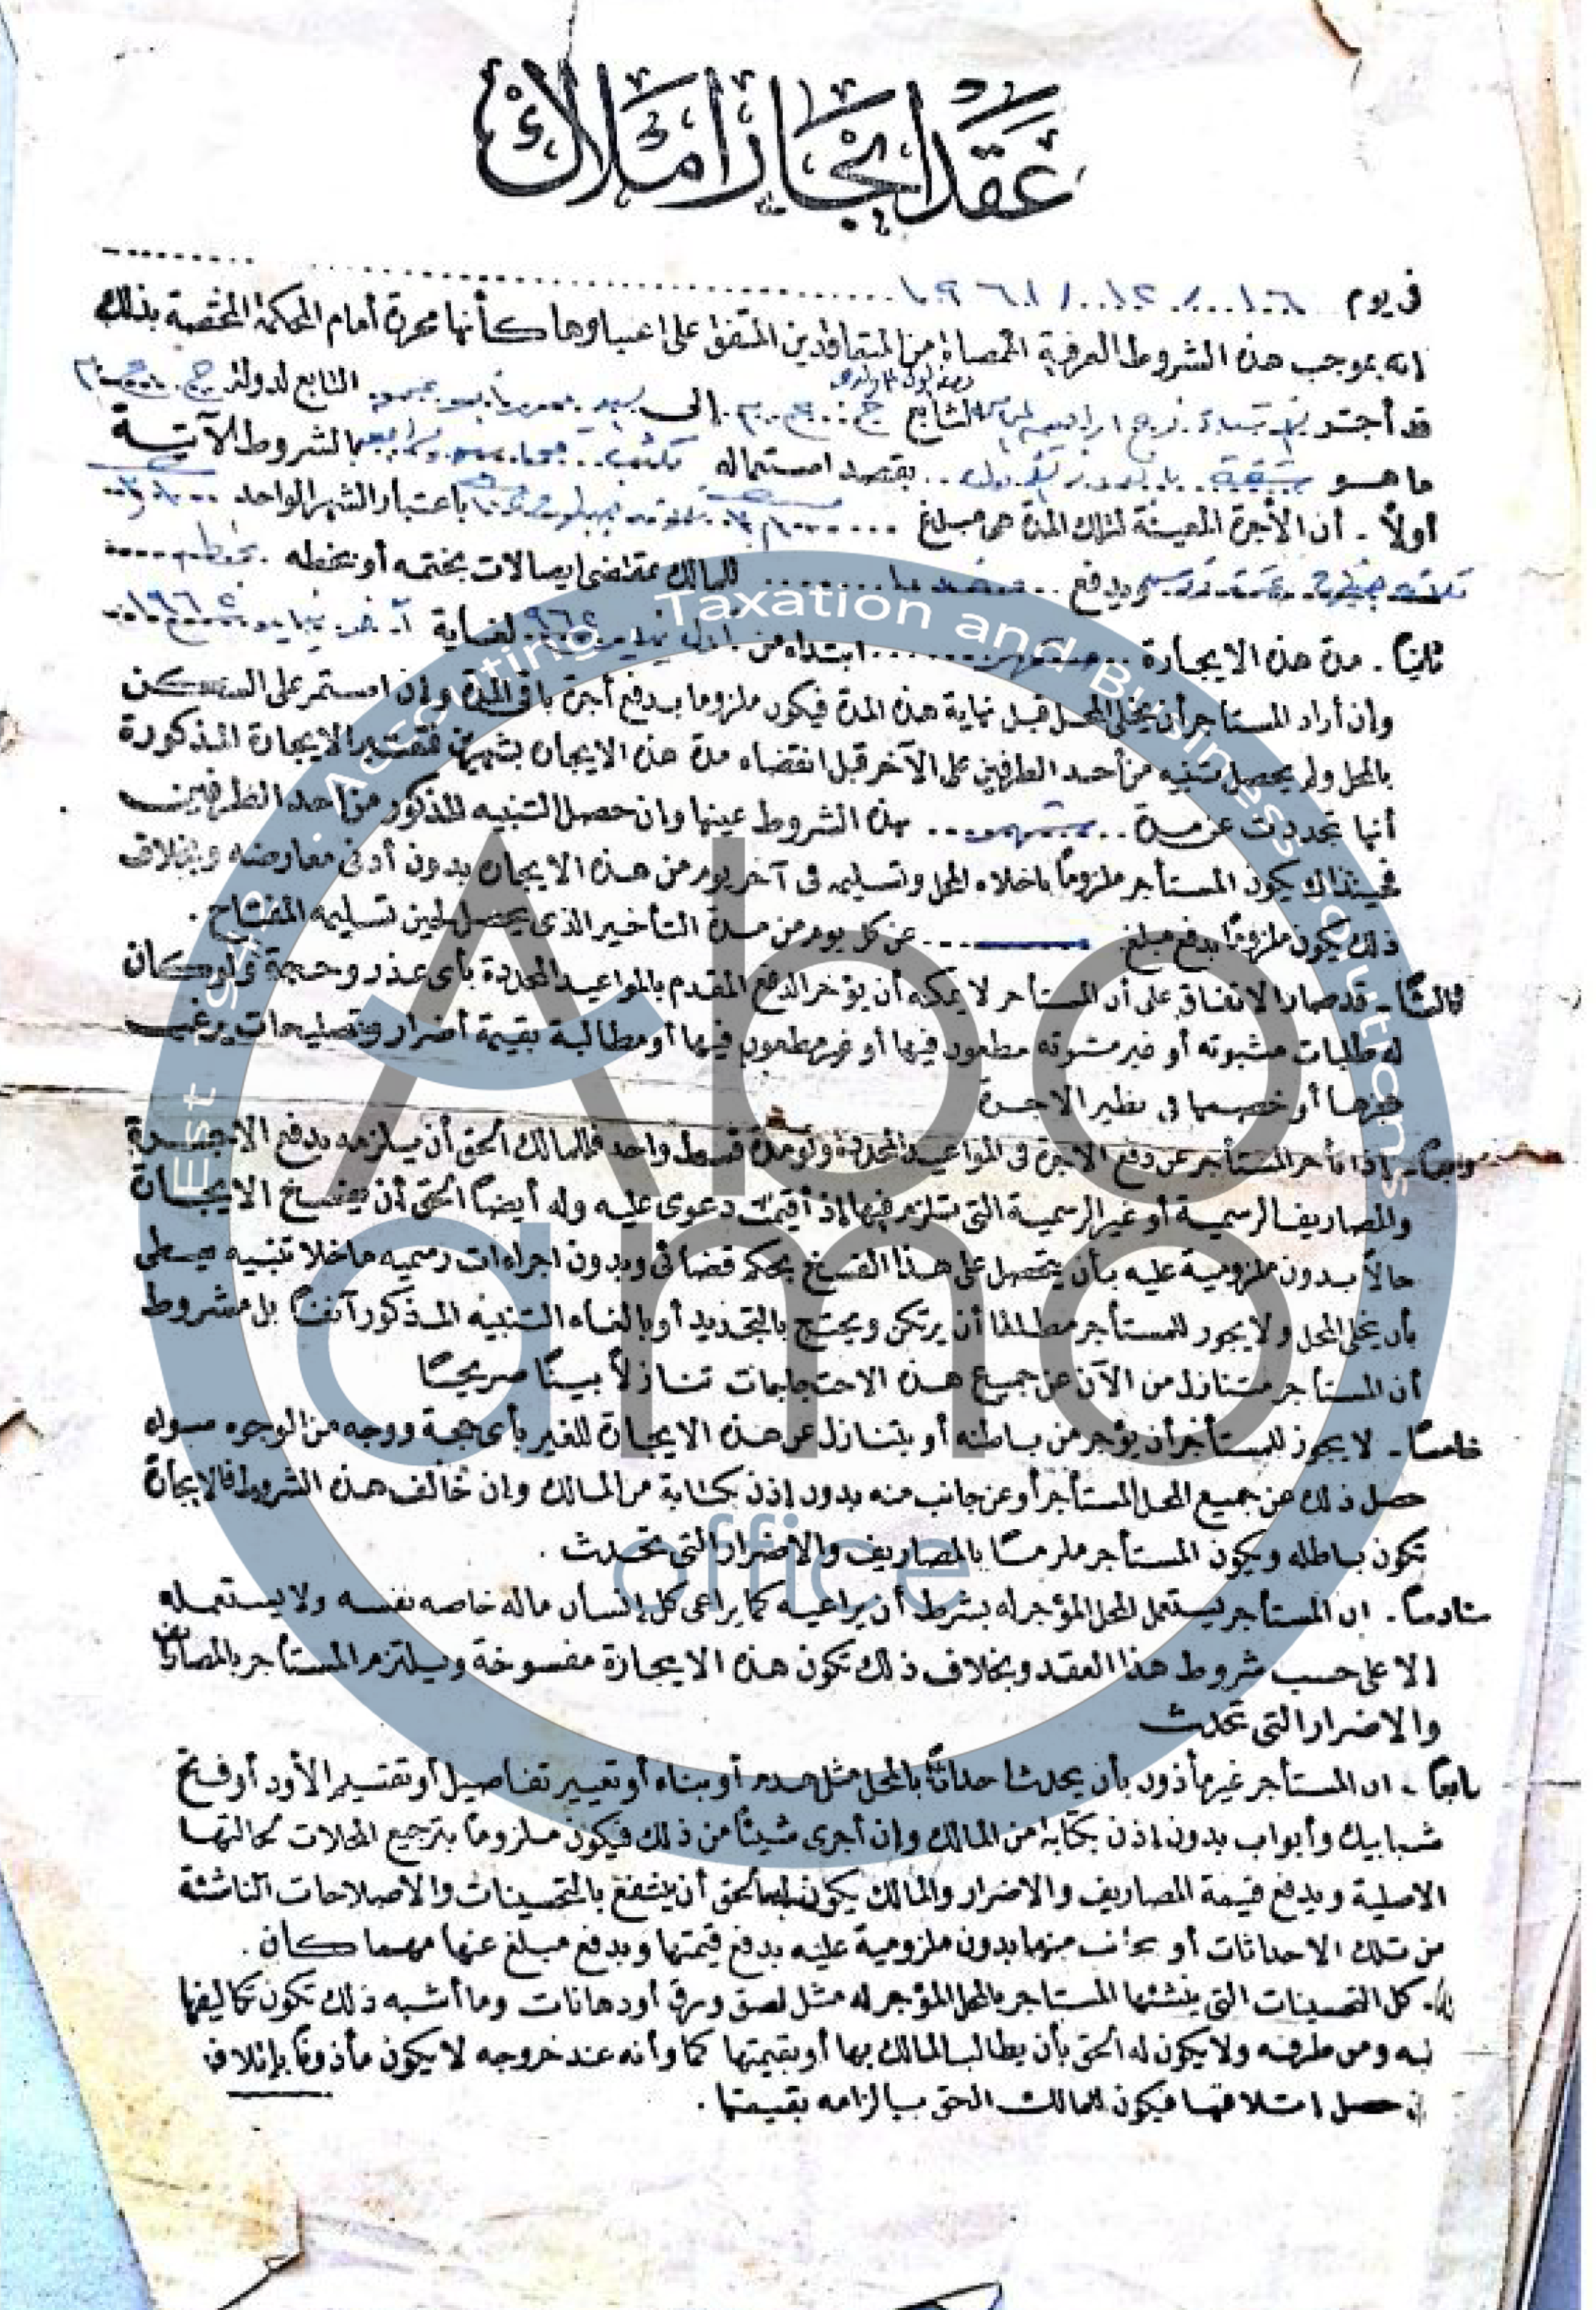 عقد ايجار املاك
فى يوم
انه بموجب هذه الشروط العرفية الممضاة من المتعاقدين المتفق على اعتبارها كأنها محررة أمام المحكمة المختصة بذلك
قد أجــر التابع إلى التابع لدولة ج.ع.م
ما هــو شقة بقصد استعماله مكتب بالشروط الآتيــة
أولاً - أن الأجرة المعينة لتلك المدة هى مبلغ باعتبار الشهر الواحد
ويدفع للمالك بمقتضى ايصالات بختمه أو بخطه
ثانياً - مدة هذه الايجارة ابتداء من أول يناير لغاية آخر يناير
وان أراد المستأجر أن يخلى المحل قبل نهاية هذه المدة فيكون ملزوما بدفع أجرة باقى المدة وإن استمر على السكن
بالمحل ولم يحصل تنبيه من أحد الطرفين على الآخر قبل انقضاء مدة هذه الايجارة بشهرين فتعتبر الايجارة المذكورة
أنها تجددت عن مدة بهذه الشروط عينها وان حصل التنبيه المذكور من احد الطرفين
فحينذاك يكون المستأجر ملزوماً باخلاء المحل وتسليمه فى آخر يوم من هذه الايجارة بدون أدنى معارضه وبخلاف
ذلك يكون ملزوماً بدفع مبلغ عن كل يوم من مدة التأخير الذى يحصل لحين تسليمه المفتاح .
ثالثاً - قد صار الاتفاق على أن المستأجر لا يمكنه أن يؤخر الدفع المقدم بالمواعيد المحددة بأى عذر وحجة ولو كان
له طلبات مثبوته أو غير مثبوته مطعون فيها أو غير مطعون فيها أو مطالبة بقيمة أضرار وتصليحات يرغب
أو خصمها فى نظير الاجرة
رابعاً - إذا تأخر المستأجر عن دفع الاجرة فى المواعيد المحددة ولو مدة قسط واحد فللمالك الحق أن يلزمه بدفع الاجــرة
والمصاريف الرسمية أو غير الرسمية التى ستلزم فيها إذ أقيمت دعوى عليه وله أيضاً الحق أن يفسخ الايجارة
حالاً بدون ملزومية عليه بأن يتحصل على هذا الفسخ بحكم قضائى وبدون اجراءات رسميه ما خلا تنبيه بسيط
بأن يخلى المحل ولا يجوز للمستأجر مطلقا أن يرتكن ويحتج بالتجديد أو بالغاء التنبيه المذكور آنفاً بل مشروط
أن المستأجر متنازل من الآن عن جميع هذه الاحتجاجات تنازلاً بيناً صريحاً
خامساً - لا يجوز للمستأجر أن يؤجر من باطنه أو يتنازل عن هذه الايجارة للغير بأى حجة ووجه من الوجوه سواء
حصل ذلك عن جميع المحل المستأجر أو عن جانب منه بدون إذن بكتابة من المالك وإن خالف هذه الشروط فالايجارة
تكون باطله ويكون المستأجر ملزماً بالمصاريف والاضرار التى تحدث .
سادساً - ان المستأجر يستعمل المحل المؤجر له بشرط أن يراعيه كما يراعى كل إنسان ماله خاصه نفسه ولا يستعمله
إلا على حسب شروط هذا العقد وبخلاف ذلك تكون هذه الايجارة مفسوخة ويلتزم المستأجر بالمصاريف
والاضرار التى تحدث
سابعاً - ان المستأجر غير مأذون بأن يحدث احداثاً بالمحل مثل هدم أو بناء أو تغيير تفاصيل أو تقسيم الأود أو فتح
شبابيك وأبواب بدون إذن بكتابة من المالك وإن أجرى شيئاً من ذلك فيكون ملزوماً بترجيع المحلات لحالتها
الاصلية ويدفع قيمة المصاريف والاضرار والمالك يكون له الحق أن ينتفع بالتحسينات والاصلاحات الناشئة
من تلك الاحداثات أو بجانب منها بدون ملزومية عليه بدفع قيمتها وبدفع مبلغ عنها مهما كان .
كل التحسينات التى ينشئها المستاجر بالمحل المؤجر له مثل لصق ورق أو دهانات وما أشبه ذلك تكون تكاليفها
ومن طرفه ولا يكون له الحق بأن يطالب المالك بها أو بقيمتها كما وأنه عند خروجه لا يكون مأذوناً بإتلاف
حصل اتلافها فيكون للمالك الحق بالزامه بقيمتها .
Est 1948 . Accounting Taxation and Business solutions
Abo
amo
office